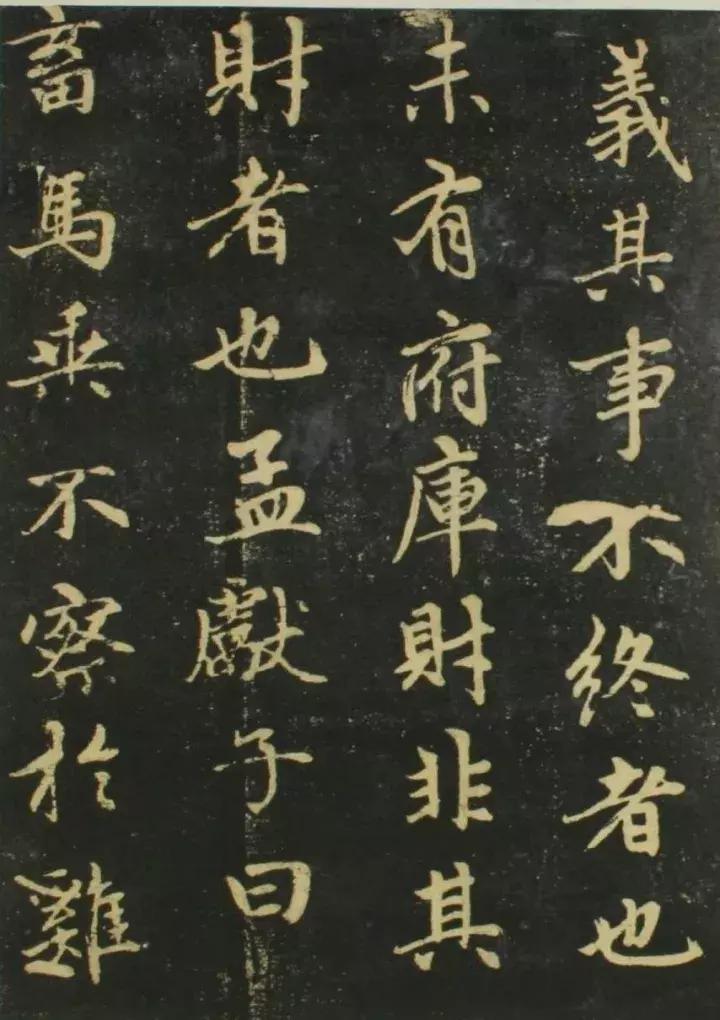 義其事不終者也
未有府庫財非其
財者也孟獻子曰
畜馬乘不察於雞